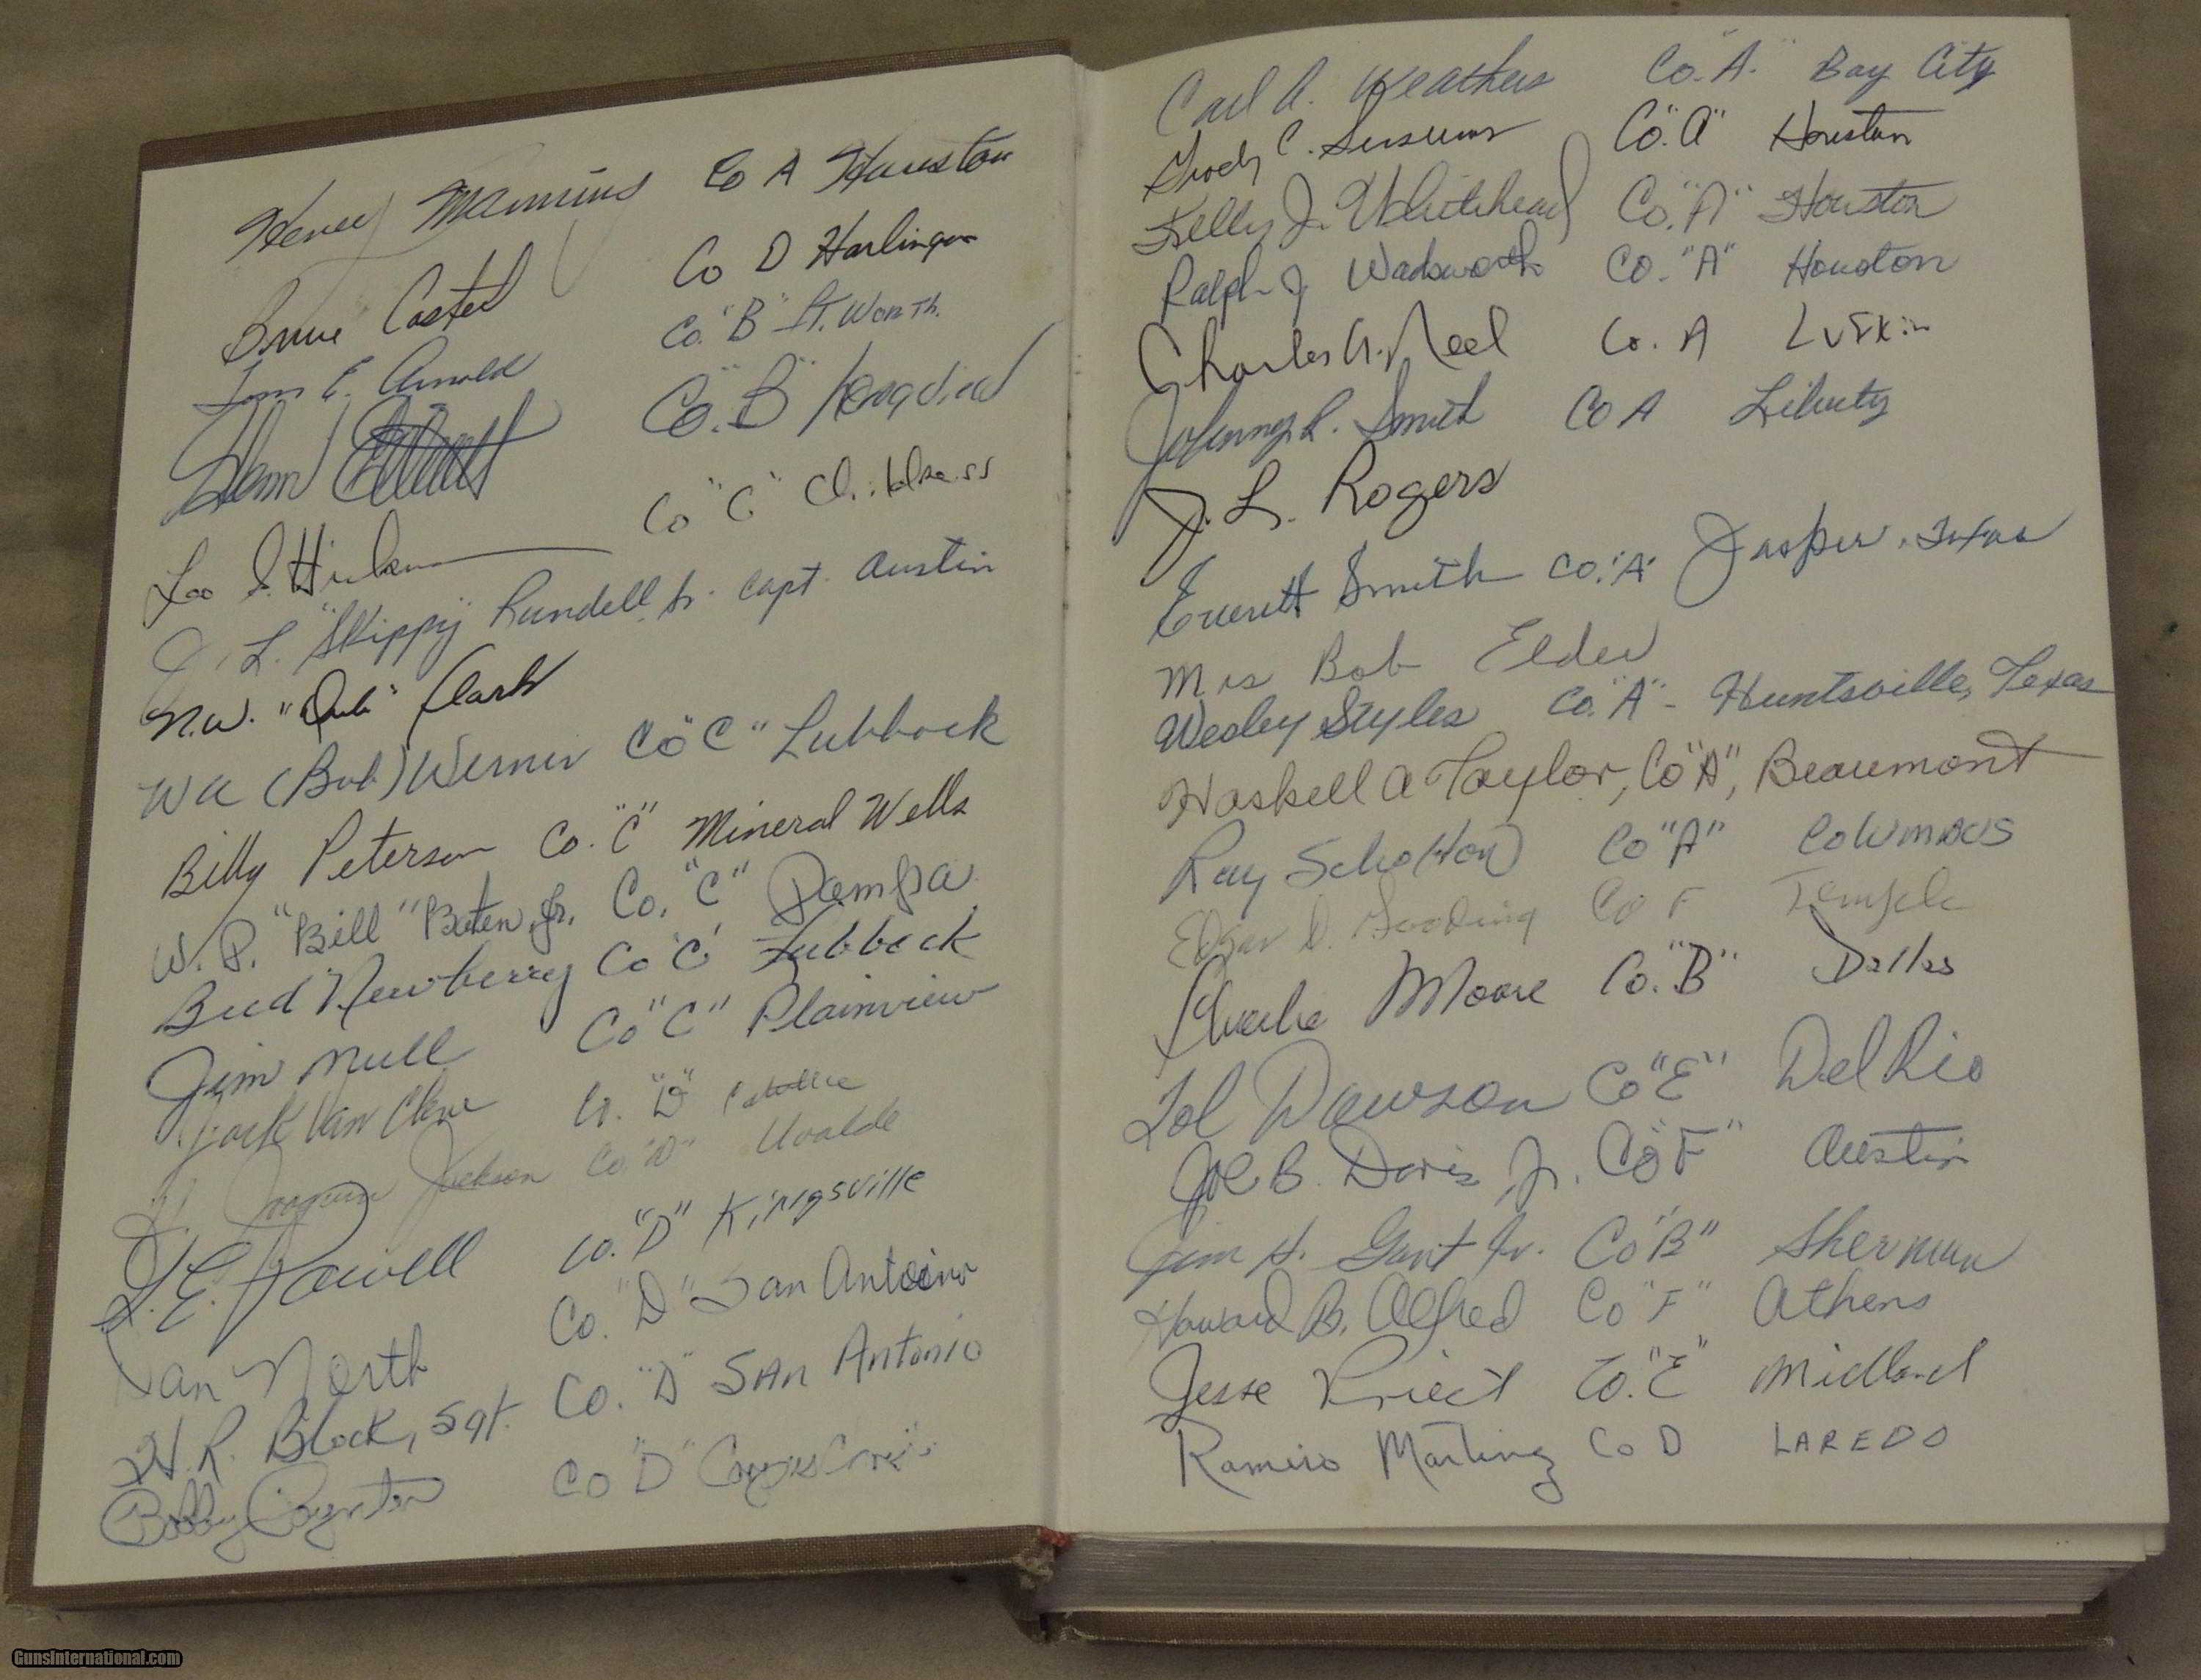 Henry Manning Co A Houston
Bruce Casteel Co D Harlingen
Tom E. Arnold Co. "B" Ft. Worth.
Glenn Elliott Co. "B" Longview
Leo E. Hickman Co "C" Childress
J. L. "Skippy" Rundell, Jr. Capt. Austin
N.W. "Dub" Clark
WA (Bob) Werner Co "C" Lubbock
Billy Peterson Co. "C" Mineral Wells
W. R. "Bill" Baten, Jr. Co. "C" Pampa
Bud Newberry Co "C" Lubbock
Jim Null Co "C" Plainview
Jack Van Cleve Co. "D" Cotulla
Joaquin Jackson Co. "D" Uvalde
G. E. Powell Co. "D" Kingsville
Dan North Co. "D" San Antonio
H. R. Block, Sgt. Co. "D" SAn Antonio
Bobby Poynter Co "D" Corpus Christi
Carl A. Weathers Co. "A" Bay City
Grady C. Sessums Co. "A" Houston
Kelly J. Whitehead Co. "A" Houston
Ralph J Wadsworth CO. "A" Houston
Charles A. Neel Co. A Lufkin
Johnny R. Smith Co A Liberty
J. L. Rogers
Everett Smith Co. "A" Jasper, Texas
Mrs Bob Elder
Wesley Styles Co. "A" - Huntsville, Texas
Haskell A Taylor, Co "A", Beaumont
Ray Scholton Co "A" Columbus
Edgar D. Gooding Co F Temple
Charlie Moore Co. "B" Dallas
Tol Dawson Co "E" Del Rio
Joe B. Davis, Jr. Co "F" Austin
Jim H. Gant Jr. Co "B" Sherman
Howard B. Alfred Co "F" Athens
Jesse Priest Co. "E" Midland
Ramiro Martinez Co D LAREDO
GunsInternational.com